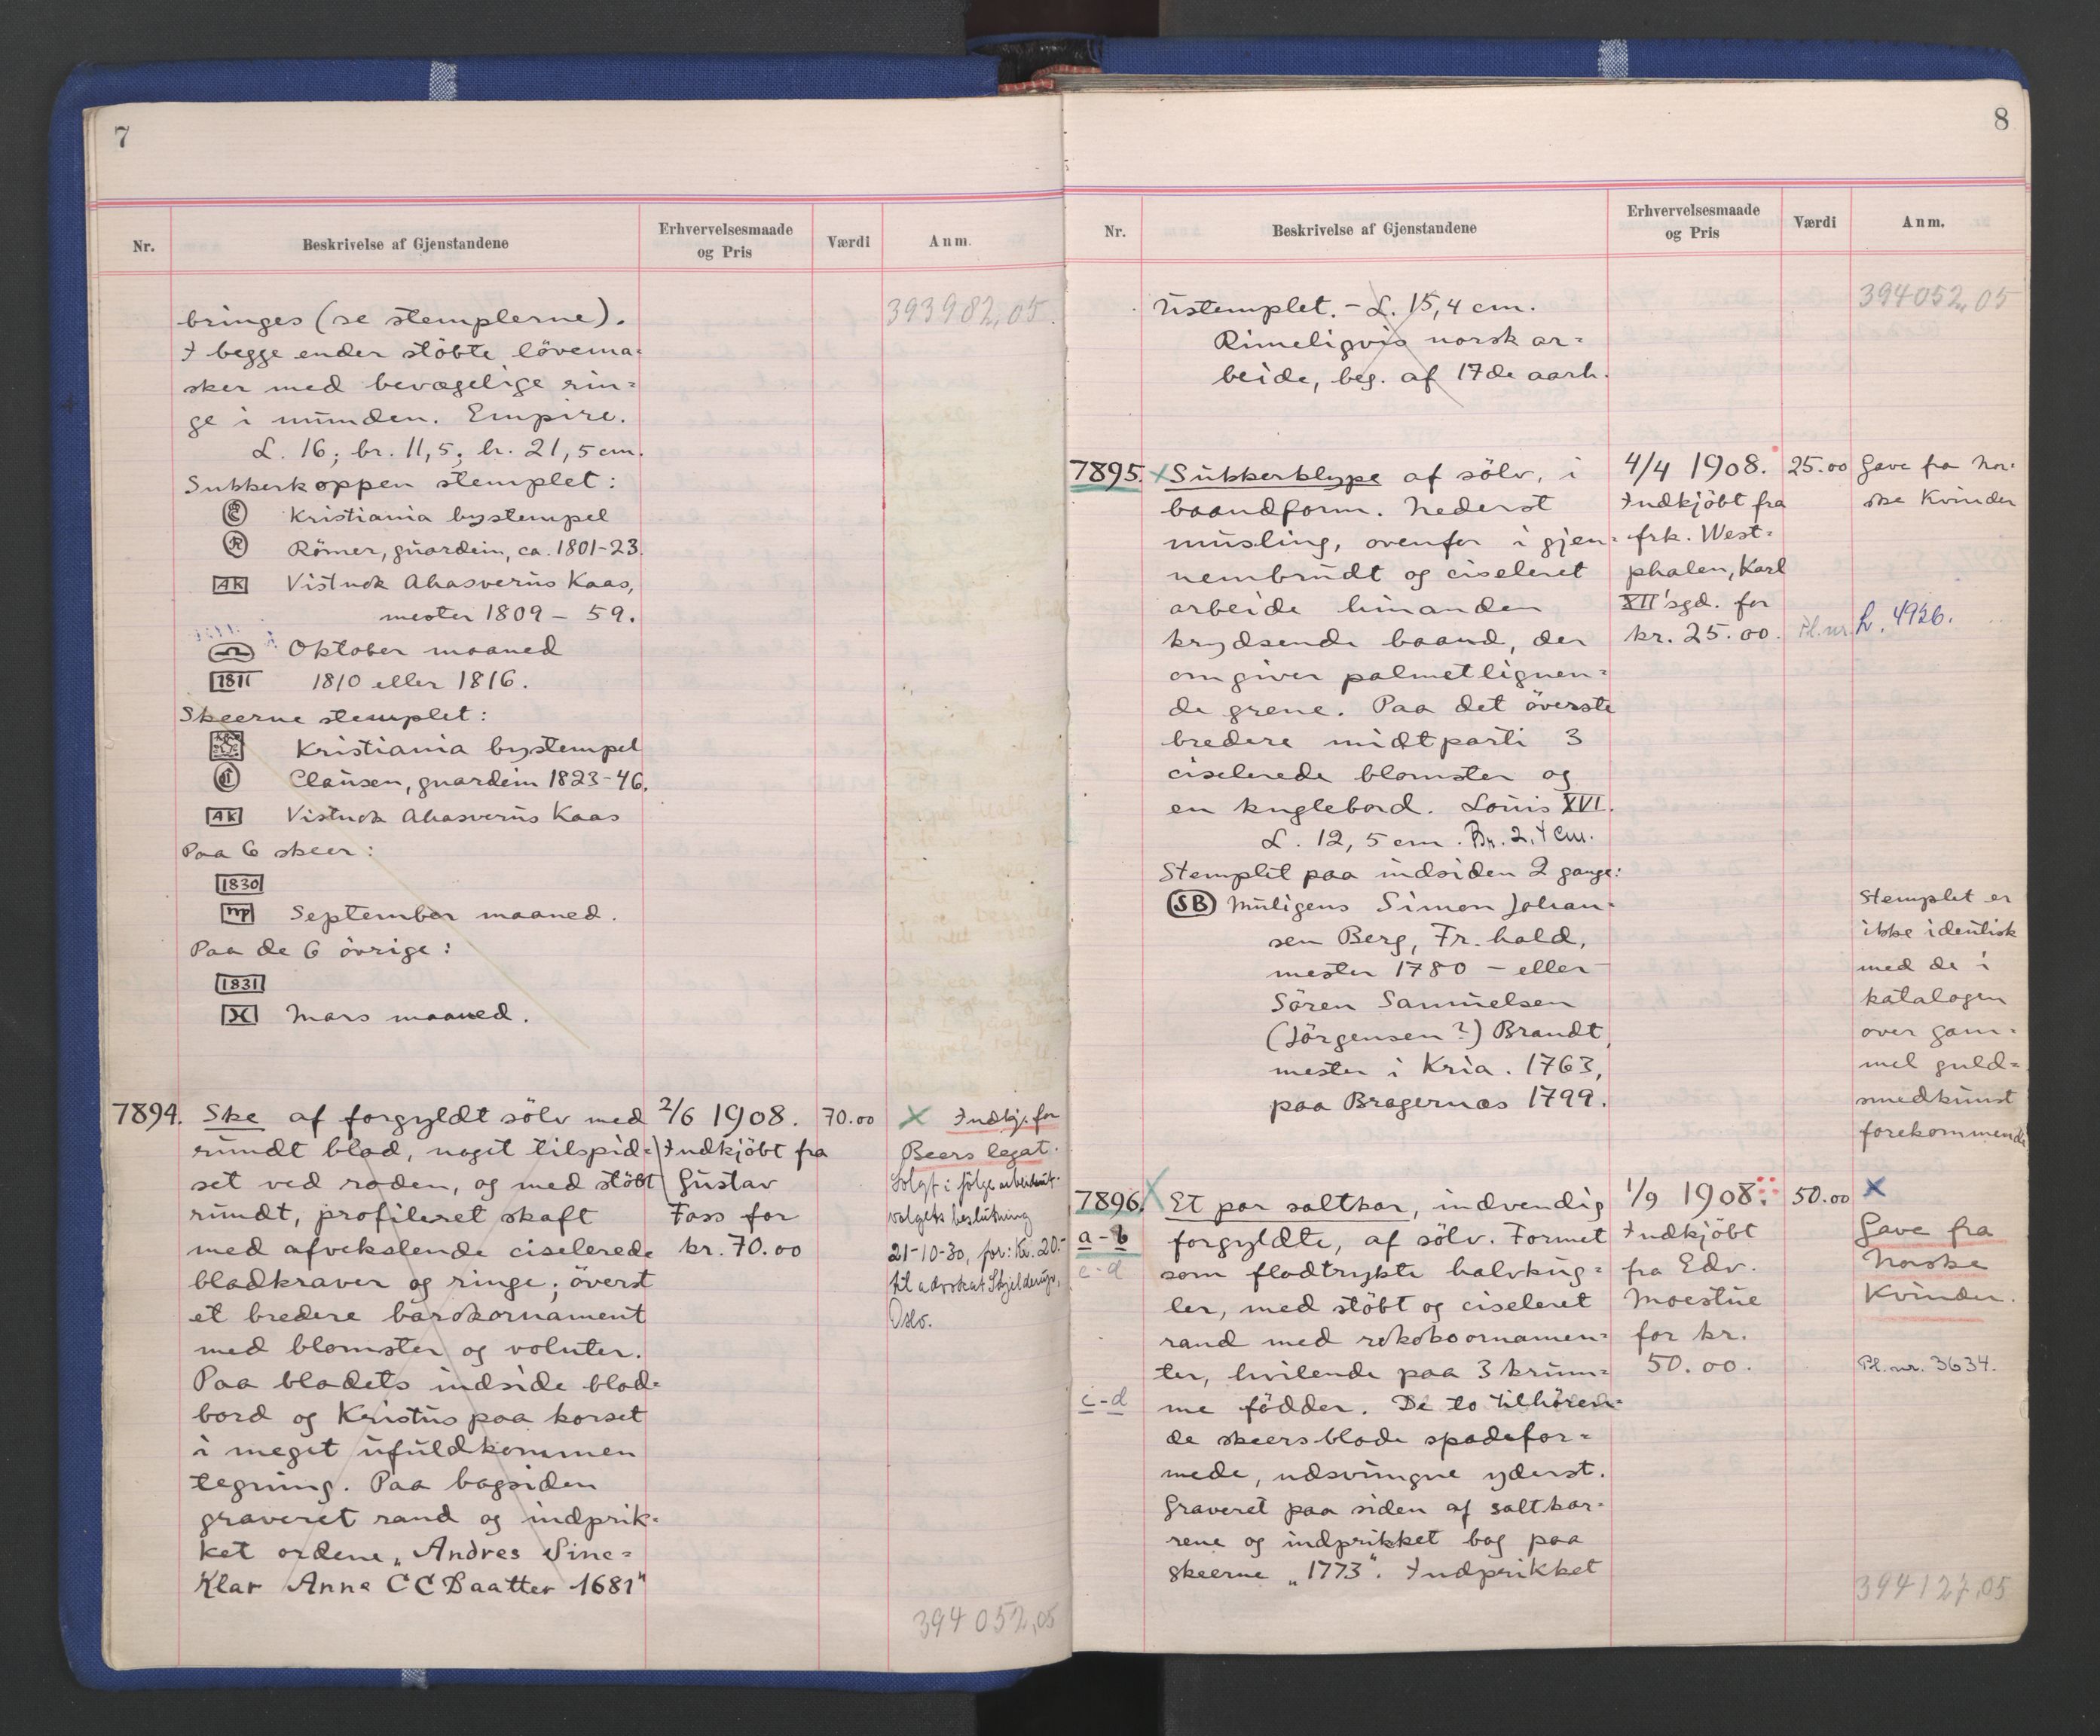 7
Nr.
Beskrivelse af Gjenstandene
Erhvervelsesmaade
og Pris
Værdi
Anm.
393982,05
bringes (se stemplerne).
I begge ender stöbte lövema=
sker med bevægelige rin=
ge i munden. Empire.
L. 16; br. 11,5; h. 21,5 cm.
Sukkerkoppen stemplet:
Kristiania bystempel
R Römer, guardein, ca. 1801-23.
AK Vistnok Ahasverus Kaas,
mester 1809 – 59.
Oktober maaned
181 1810 eller 1816.
Skeerne stemplet:
Kristiania bystempel
C Clausen, guardein 1823-46.
AK Vistnok Ahasverus Kaas
Paa 6 skeer:
1830
September maaned.
Paa de 6 övrige:
1831
Mars maaned.
7894.
Ske af forgyldt sölv med
rundt blad, noget tilspid=
set ved roden, og med stöbt
rundt, profileret skaft
med afvekslende ciselerede
bladkraver og ringe; överst
et bredere barokornament
med blomster og voluter.
Paa bladets indside blad=
bord og Kristus paa korset
i meget ufuldkommen
tegning. Paa bagsiden
graveret rand og indprik=
ket ordene „Andres Sine=
Klar Anna CC Daatter 1681"
2/6 1908.
Indkjöbt fra
Gustav
Foss for
kr. 70.00
70.00
× Indkj. for
Beers legat.
Solgt i følge arbeidsut-
valgets beslutning
21-10-30, for: Kr. 20.-
til advokat Skjelderup,
Oslo.
394052,05
8
Nr.
Beskrivelse af Gjenstandene
Erhvervelsesmaade
og Pris
Værdi
Anm.
394052,05
Ustemplet. – L. 15,4 cm.
Rimeligvis norsk ar=
beide, beg. af 17de aarh.
7895.
× Sukkerklype af sölv, i
baandform. Nederst
musling, ovenfor i gjen=
nembrudt og ciseleret
arbeide hinanden
krydsende baand, der
omgiver palmetlignen=
de grene. Paa det överste
bredere midtparti 3
ciselerede blomster og
en kuglebord. Louis XVI.
L. 12,5 cm. Br. 2,4 cm.
Stemplet paa indsiden 2 gange:
SB Muligens Simon Johan=
sen Berg, Fr.hald,
mester 1780 – eller
Sören Samuelsen
(Jörgensen?) Brandt,
mester i Kria. 1763,
paa Bragernæs 1799.
4/4 1908.
Indkjöbt fra
frk. West=
phalen, Karl
XII'sgd. for
kr. 25.00.
25.00
Gave fra Nor=
ske Kvinder
Pl.nr. L. 4926.
Stemplet er
ikke identisk
med de i
katalogen
over gam=
mel guld=
smedkunst
forekommende
7896.
a-b
c-d
× Et par saltkar, indvendig
forgyldte, af sölv. Formet
som fladtrykte halvkug=
ler, med stöbt og ciseleret
rand med rokokoornamen=
ter, hvilende paa 3 krum=
c-d
me födder. De to tilhören=
de skeersblade spadefor=
mede, udsvungne yderst.
Graveret paa siden af saltkar=
rene og indprikket bag paa
skeerne „1773". Indprikket
1/9 1908.
Indkjöbt
fra Edv.
Moestue
for kr.
50.00.
50.00
×
Gave fra
Norske
Kvinder.
Pl. nr. 3634.
394127,05